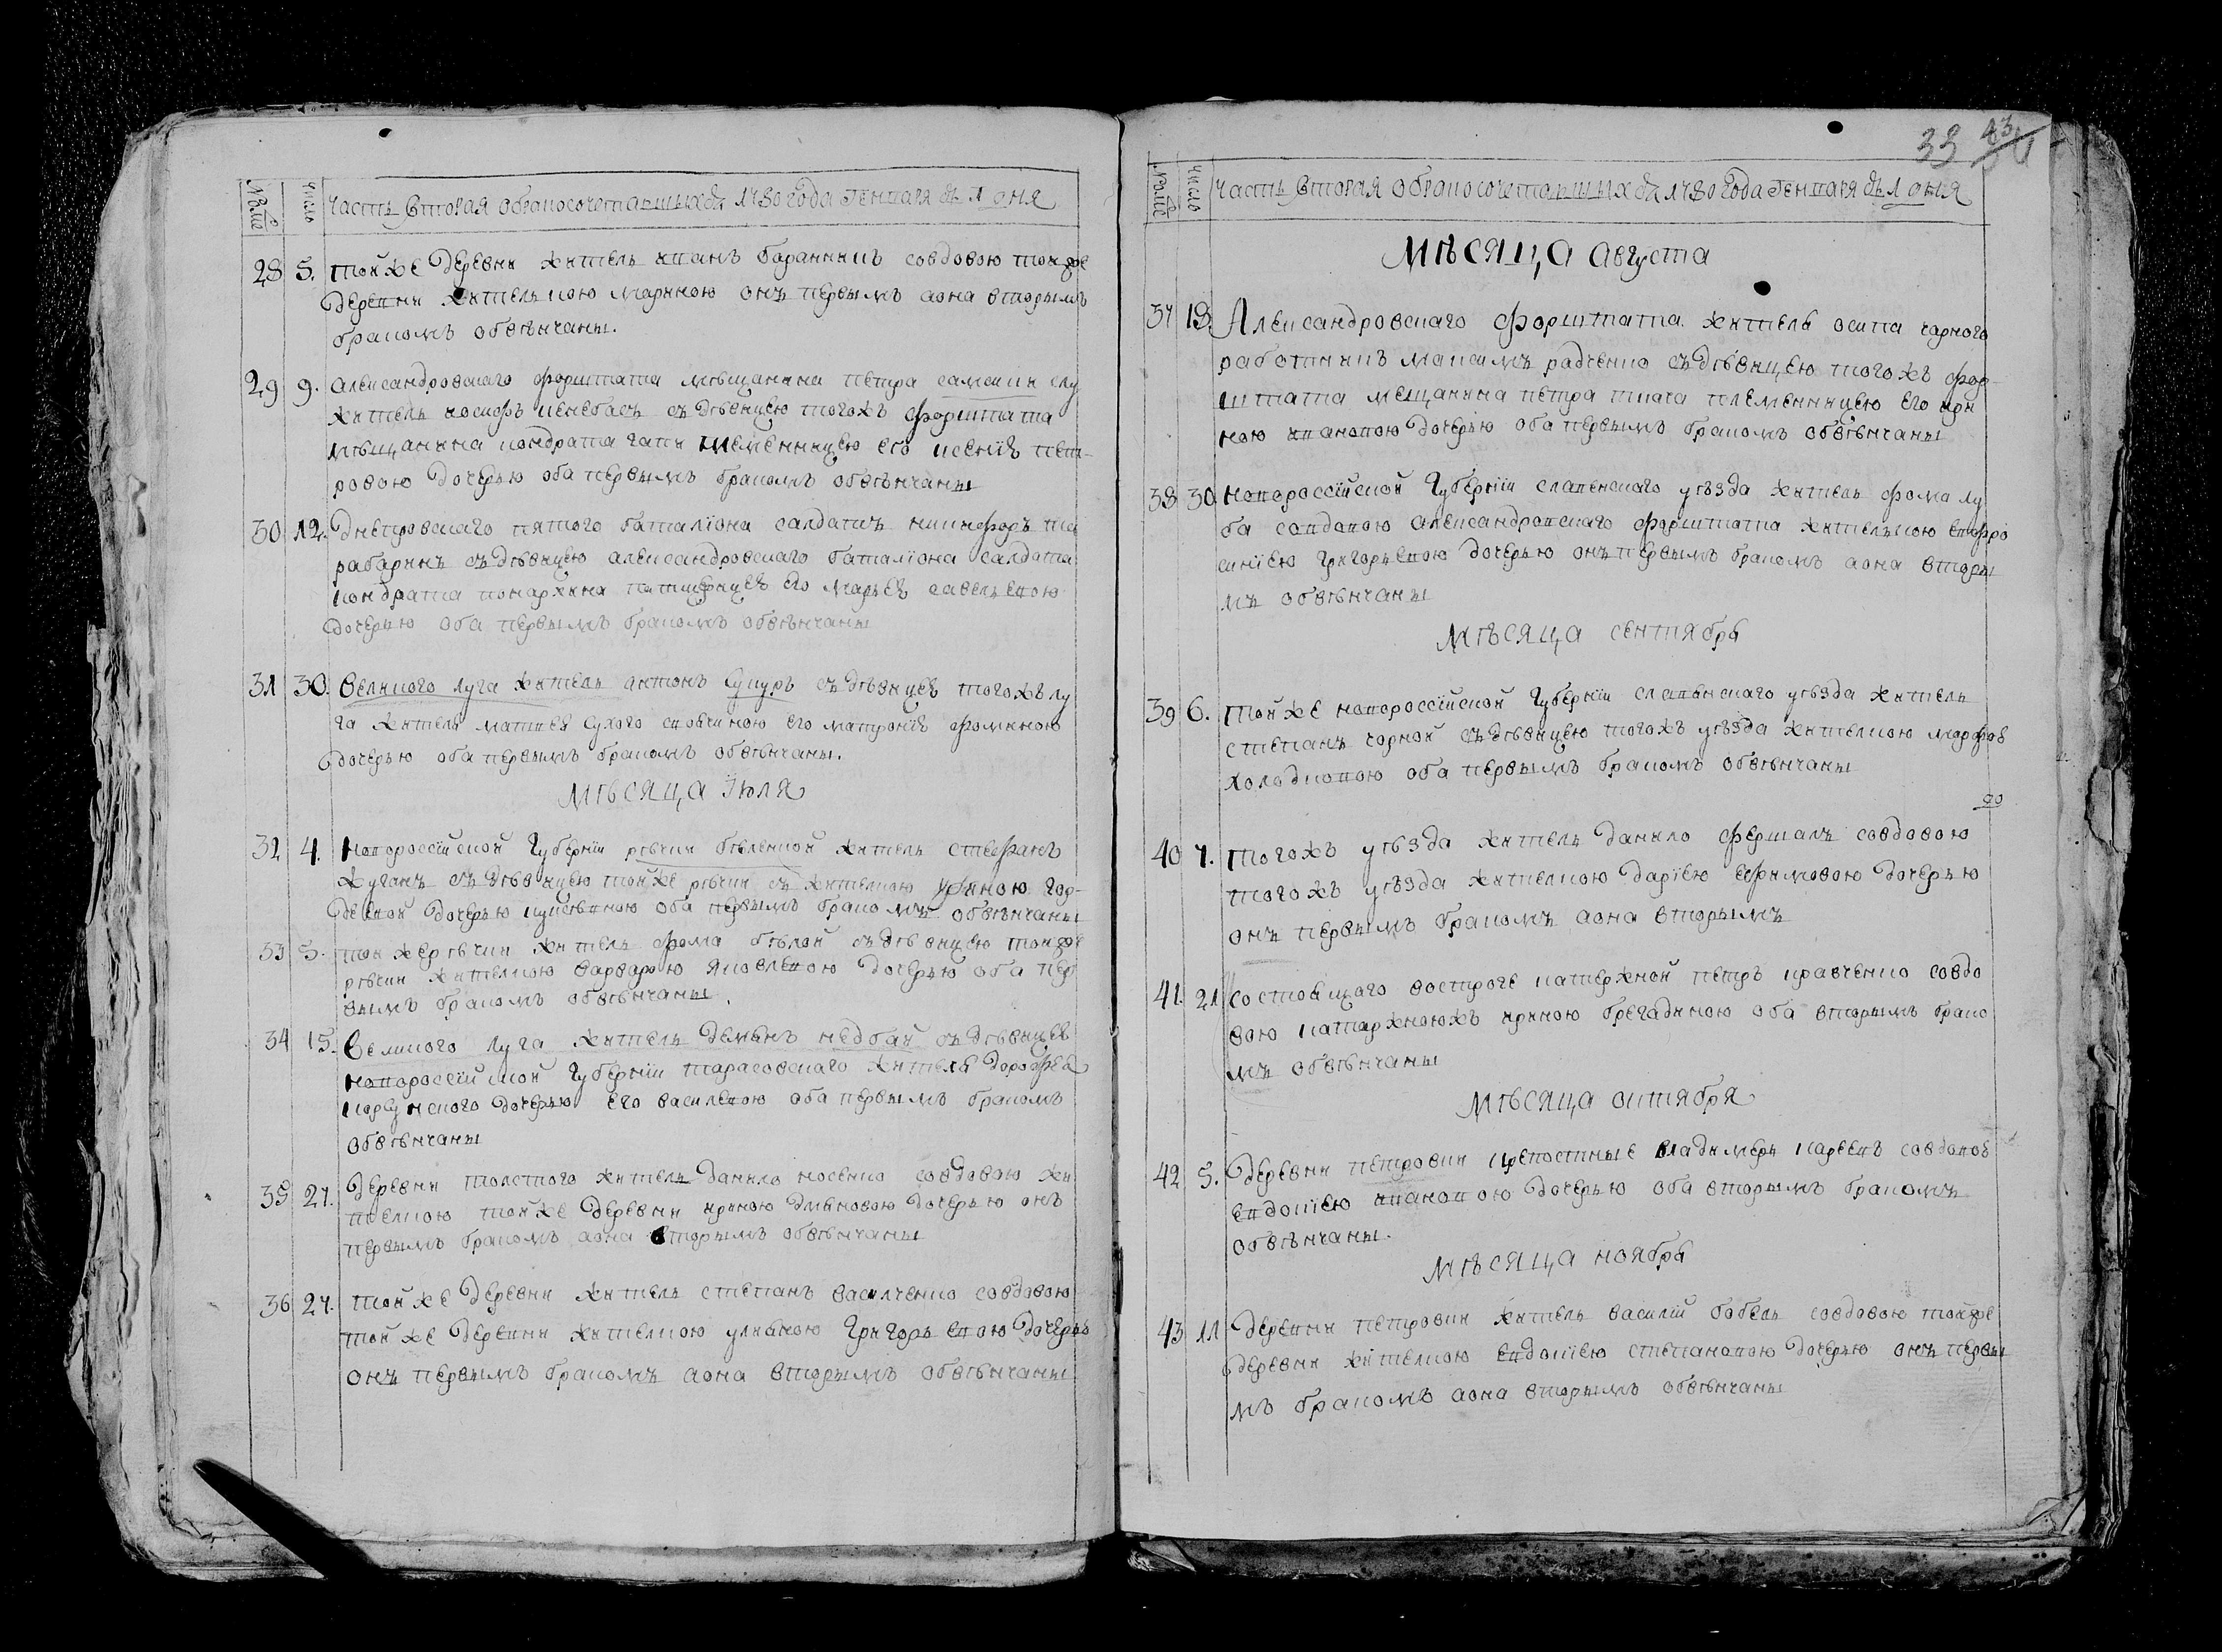 № мѣс
число
часть вторая обракосочетавшихся 1780 года генваря съ 1 дня
28 5. той же деревни житель иванъ баранникъ совдовою тоиже
деревни жителкою мариною онъ первымъ аона вторымъ
бракомъ обвѣнчаны.
29 9. александровскаго форштата мѣщанина петра самси
житель иосифъ кенебасъ съ дѣвицею тогожъ форштата
мѣщанина кондрата гапи племенницею его ксениѣ пет-
ровою дочерью оба первымъ бракомъ обвѣнчаны
30 12. днепровскаго пятого баталїона салдатъ никифоръ
рабаринъ съ дѣвицею александровскаго баталїона салдата
кондрата понархина патчерицеѣ его марьеѣ савельевою
дочерью оба первымъ бракомъ обвѣнчаны
31 30. великого луга житель антонъ сукуръ съ дѣвицеѣ тогожъ лу
га жителя матвея сухого своячиною его матрониѣ фоминою
дочерью оба первымъ бракомъ обвѣнчаны.
мѣсяца Їюля
32 4. новороссїйской губернїи рѣчки бѣленкой житель стефанъ
жуганъ съ дѣвицею тойже рѣчки съ жителкою уриною гор-
деевой дочерью оба первымъ бракомъ обвѣнчаны
33 5. тои же рѣчки житель фома бѣлой съ дѣвицею тоиже
рѣчки жителкою варварою яковлевою дочерью оба пер
вымъ бракомъ обвѣнчаны.
34 15. великого луга житель демянъ недбай съ дѣвицеѣ
новороссїйской губернїи тарасовскаго жителя дорофея
корсунского дочерью его василевою оба первымъ бракомъ
обвѣнчаны
35 27. деревни толстого житель данило носенко совдовою жи
телкою той же деревни ириною дмяновою дочерью онъ
первымъ бракомъ аона вторымъ обвѣнчаны
36 27. той же деревни житель степанъ василченко совдовою
той же деревни жителкою улияною григорьевою дочерью
онъ первымъ бракомъ аона вторымъ обвѣнчаны
39 43
№ мѣс
число
часть вторая обракосочетавшихся 1780 года генваря съ 1 дня
мѣсяца августа
37 18. Александровскаго форштата жителя осипа чорного
работникъ максимъ радченко съ дѣвицею тогожъ фор-
штата мещанина петра ткача племенницею его ири
ною ивановою дочерью оба первымъ бракомъ обвѣнчаны
38 30. новороссїйской губернїи славенскаго уѣзда житель фома лу
ба совдовою александровскаго форштата жителькою евфро
синїею григорьевою дочерью онъ первымъ бракомъ аона вторы
мъ обвѣнчаны
мѣсяца сентября
39 6. той же новороссїйской губернїи славенскаго уѣзда житель
степанъ чорной съ дѣвицею тогожъ уѣзда жителкою марфоѣ
холодковою оба первымъ бракомъ обвѣнчаны
40 7. тогожъ уѣзда житель данило фершалъ совдовою
тогожъ уѣзда жителкою дарїею ефимовою дочерью
онъ первымъ бракомъ аона вторымъ
41. 21 состоящаго востроге катержной петръ кравченко совдо
вою катаржноюжъ ириною брегадиною оба вторымъ брако
мъ обвѣнчаны
мѣсяца октября
42 5. деревни петровки крепостные владимеръ каревъ совдовоѣ
евдокїею ивановою дочерью оба вторымъ бракомъ
обвѣнчаны.
мѣсяца ноября
43 11 деревни петровки житель василїй бобель совдовою тойже
деревни жителкою евдокїею степановою дочерью онъ первы
мъ бракомъ аона вторымъ обвѣнчаны